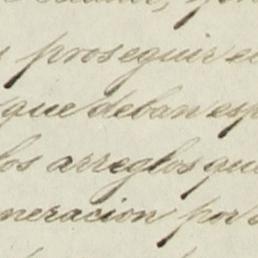 proseguir el
que deban esp
los arreglos que
neracion por s